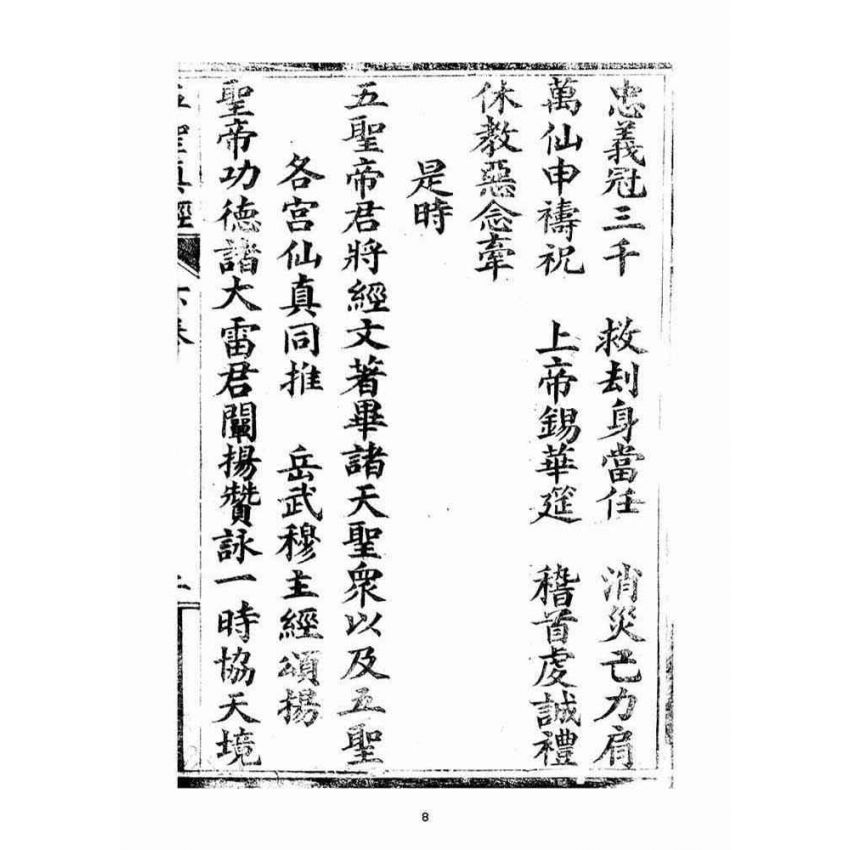 忠義冠三千　救刦身當任　消災己力肩
萬仙申禱祝　上帝錫華筵　稽首虔誠禮
休教惡念牽
是時
五聖帝君將經文著畢諸天聖衆以及五聖
各宮仙真同推　岳武穆主經頌揚
聖帝功德諸大雷君闡揚贊詠一時協天境
五聖真經　下卷　二
8